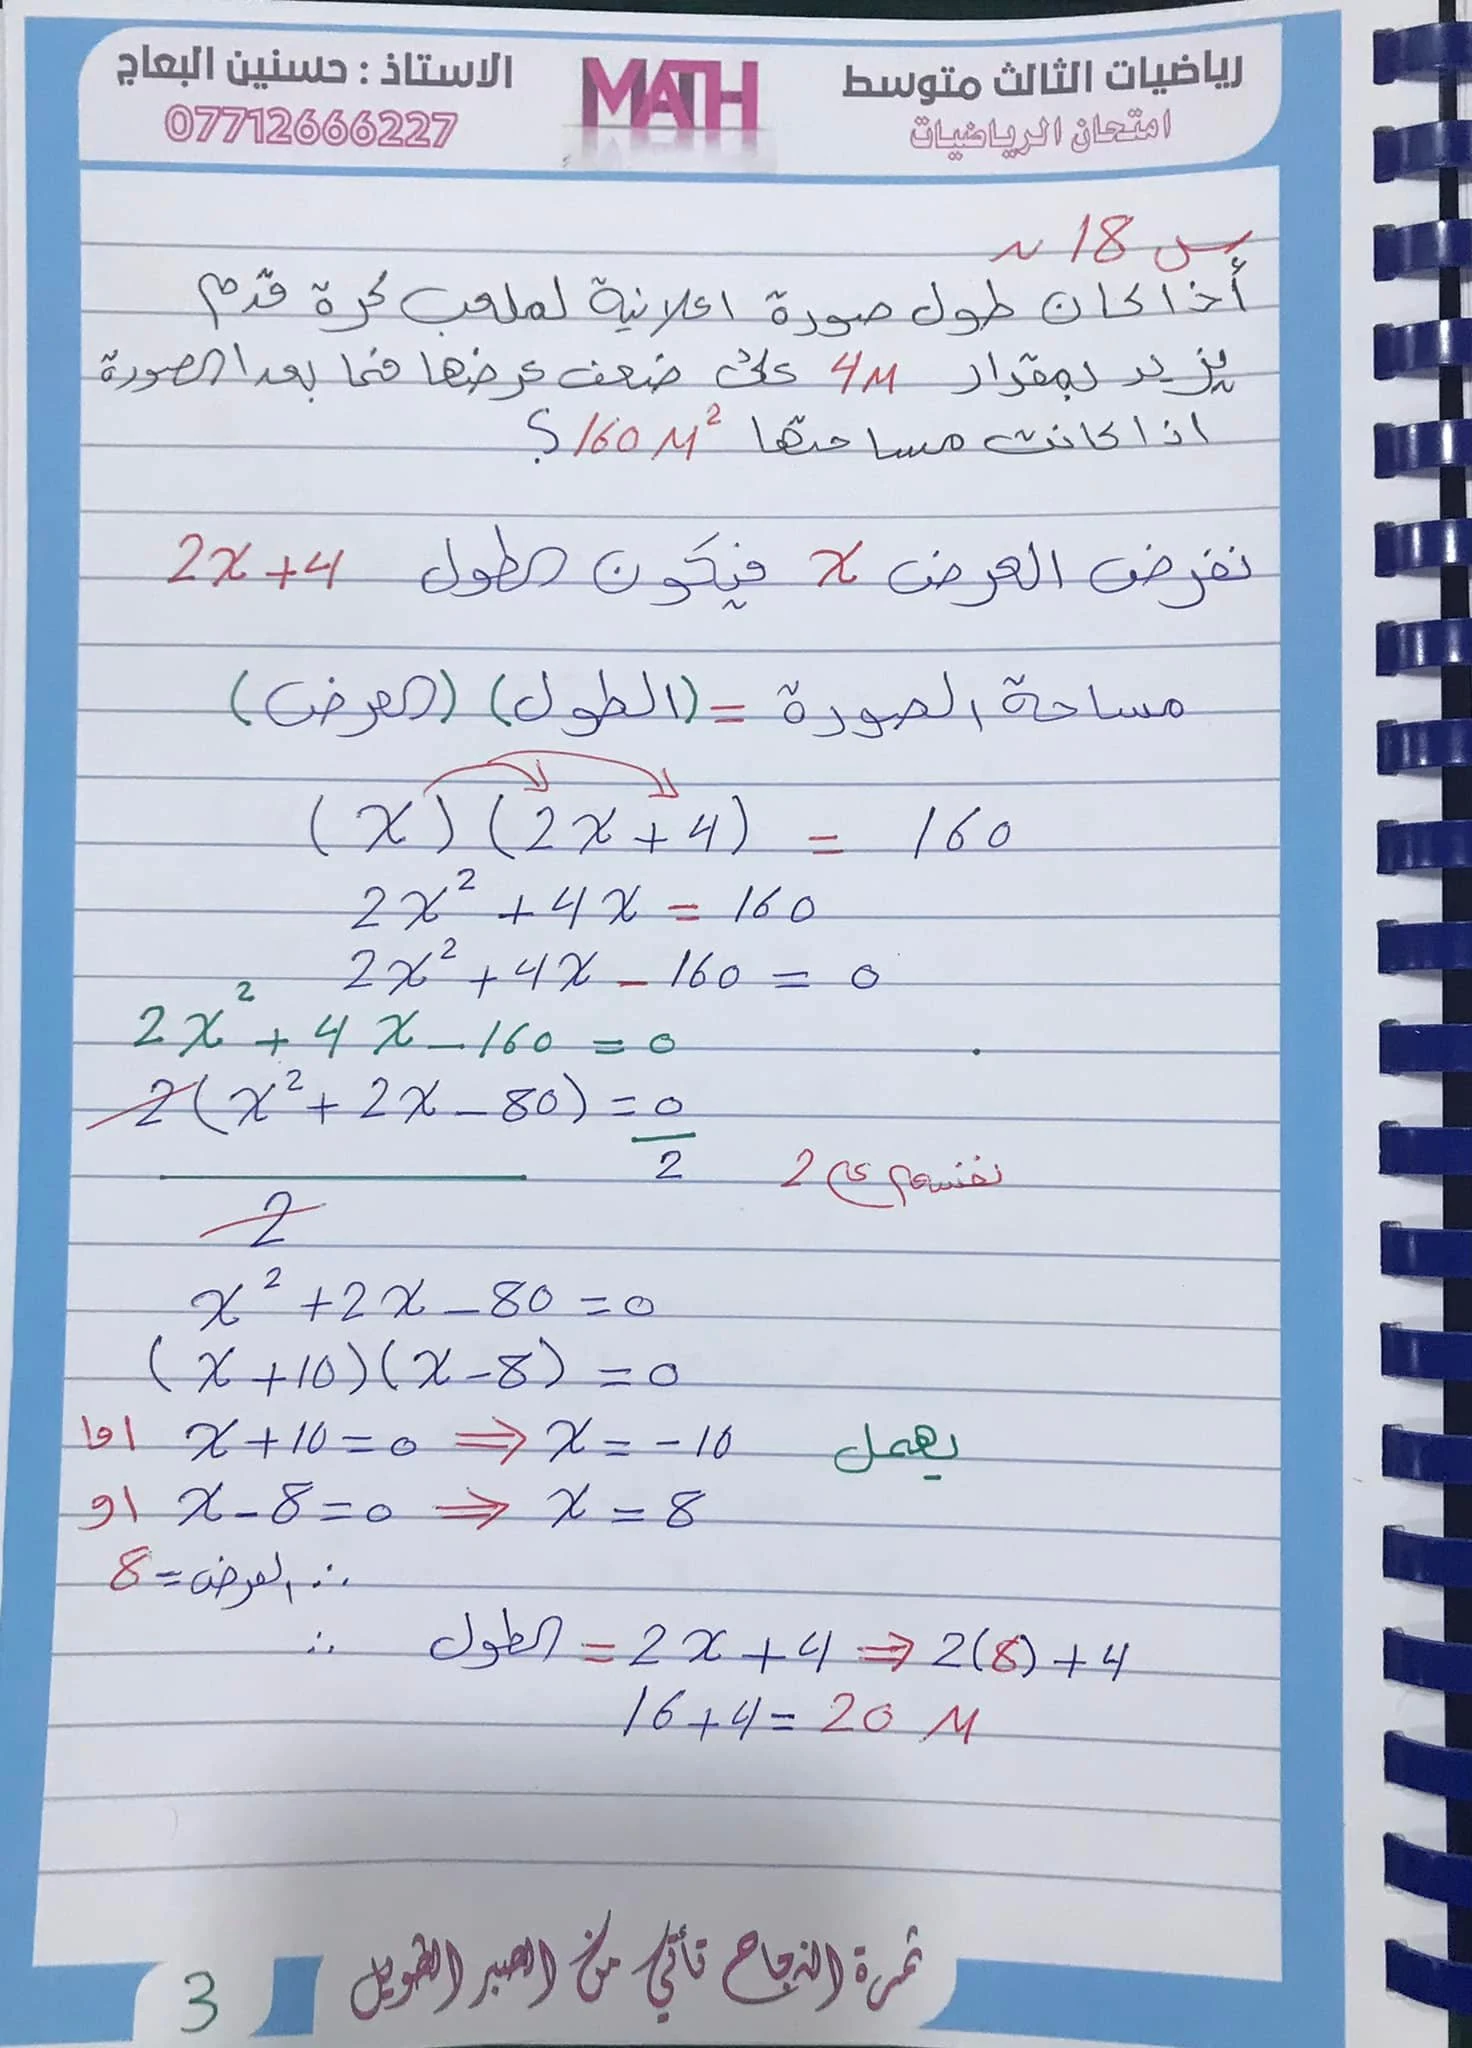 رياضيات الثالث متوسط
امتحان الرياضيات
MATH
الاستاذ : حسنين البعاج
07712666227
س 18 ~
أذا كان طول صورة اعلانية لملعب كرة قدم
يزيد بمقدار 4M على ضعف عرضها فما بعدا الصورة
اذا كانت مساحتها 160 M² ؟
نفرض العرض x فيكون الطول 2x+4
مساحة الصورة = (الطول) (العرض)
(x) (2x+4) = 160
2x² + 4x = 160
2x² + 4x - 160 = 0
2x² + 4x - 160 = 0
2(x² + 2x - 80) = 0
2 2 نقسم ع 2
x² + 2x - 80 = 0
(x + 10)(x - 8) = 0
اما x + 10 = 0 ⇒ x = -10 يهمل
او x - 8 = 0 ⇒ x = 8
∴ العرض = 8
∴ الطول = 2x + 4 ⇒ 2(8) + 4
16 + 4 = 20 M
ثمرة النجاح تأتي من الصبر الطويل
3